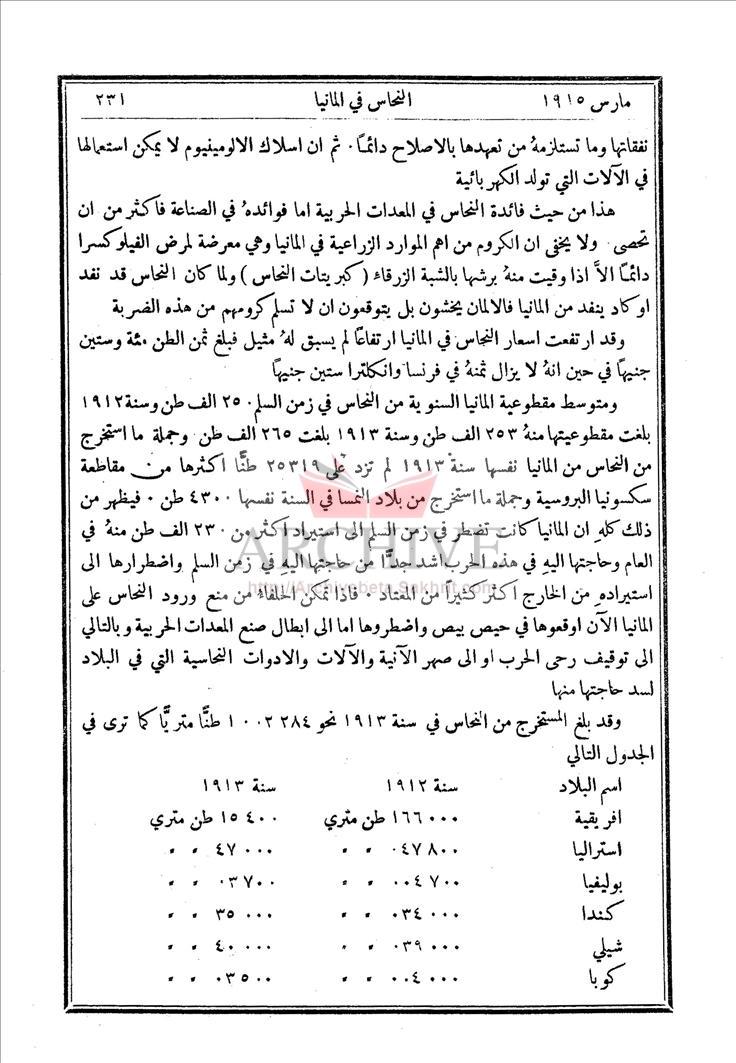 مارس ١٩١٥ النحاس في المانيا ٢٣١
نفقاتها وما تستلزمهُ من تعهدها بالاصلاح دائمًا . ثم ان اسلاك الالومينيوم لا يمكن استعمالها
في الآلات التي تولد الكهربائية
هذا من حيث فائدة النحاس في المعدات الحربية اما فوائدهُ في الصناعة فاكثر من ان
تحصى . ولا يخفى ان الكروم من اهم الموارد الزراعية في المانيا وهي معرضة لمرض الفيلوكسرا
دائمًا الَّا اذا وقيت منهُ برشها بالشبة الزرقاء (كبريتات النحاس) ولما كان النحاس قد نفد
او كاد ينفد من المانيا فالالمان يخشون بل يتوقعون ان لا تسلم كرومهم من هذه الضربة
وقد ارتفعت اسعار النحاس في المانيا ارتفاعًا لم يسبق لهُ مثيل فبلغ ثمن الطن مئة وستين
جنيهًا في حين انهُ لا يزال ثمنهُ في فرنسا وانكلترا ستين جنيهًا
ومتوسط مقطوعية المانيا السنوية من النحاس في زمن السلم ٢٥٠ الف طن وسنة ١٩١٢
بلغت مقطوعيتها منهُ ٢٥٣ الف طن وسنة ١٩١٣ بلغت ٢٦٥ الف طن وجملة ما استخرج
من النحاس من المانيا نفسها سنة ١٩١٣ لم تزد على ٢٥٣١٩ طنًّا اكثرها من مقاطعة
سكسونيا البروسية وجملة ما استخرج من بلاد النمسا في السنة نفسها ٤٣٠٠ طن . فيظهر من
ذلك كلهِ ان المانيا كانت تضطر في زمن السلم الى استيراد اكثر من ٢٣٠ الف طن منهُ في
العام وحاجتها اليهِ في هذه الحرب اشد جدًّا من حاجتها اليهِ في زمن السلم واضطرارها الى
استيرادهِ من الخارج اكثر كثيرًا من المعتاد . فاذا تمكن الحلفاءُ من منع ورود النحاس على
المانيا الآن اوقعوها في حيص بيص واضطروها اما الى ابطال صنع المعدات الحربية وبالتالي
الى توقيف رحى الحرب او الى صهر الآنية والآلات والادوات النحاسية التي في البلاد
لسد حاجتها منها
وقد بلغ المستخرج من النحاس في سنة ١٩١٣ نحو ١٠٠٢٢٨٤ طنًّا متريًّا كما ترى في
الجدول التالي
اسم البلاد سنة ١٩١٢ سنة ١٩١٣
افريقية ١٦٦٠٠٠ طن متري ١٥٤٠٠ طن متري
استراليا ٠٤٧٨٠٠ " " ٤٧٠٠٠ " "
بوليفيا ٠٠٤٧٠٠ " " ٠٣٧٠٠ " "
كندا ٠٣٤٠٠٠ " " ٣٥٠٠٠ " "
شيلي ٠٣٩٠٠٠ " " ٤٠٠٠٠ " "
كوبا ٠٠٤٠٠٠ " " ٠٣٥٠٠ " "
ARCHIVE
http://Archivebeta.Sakhrit.com